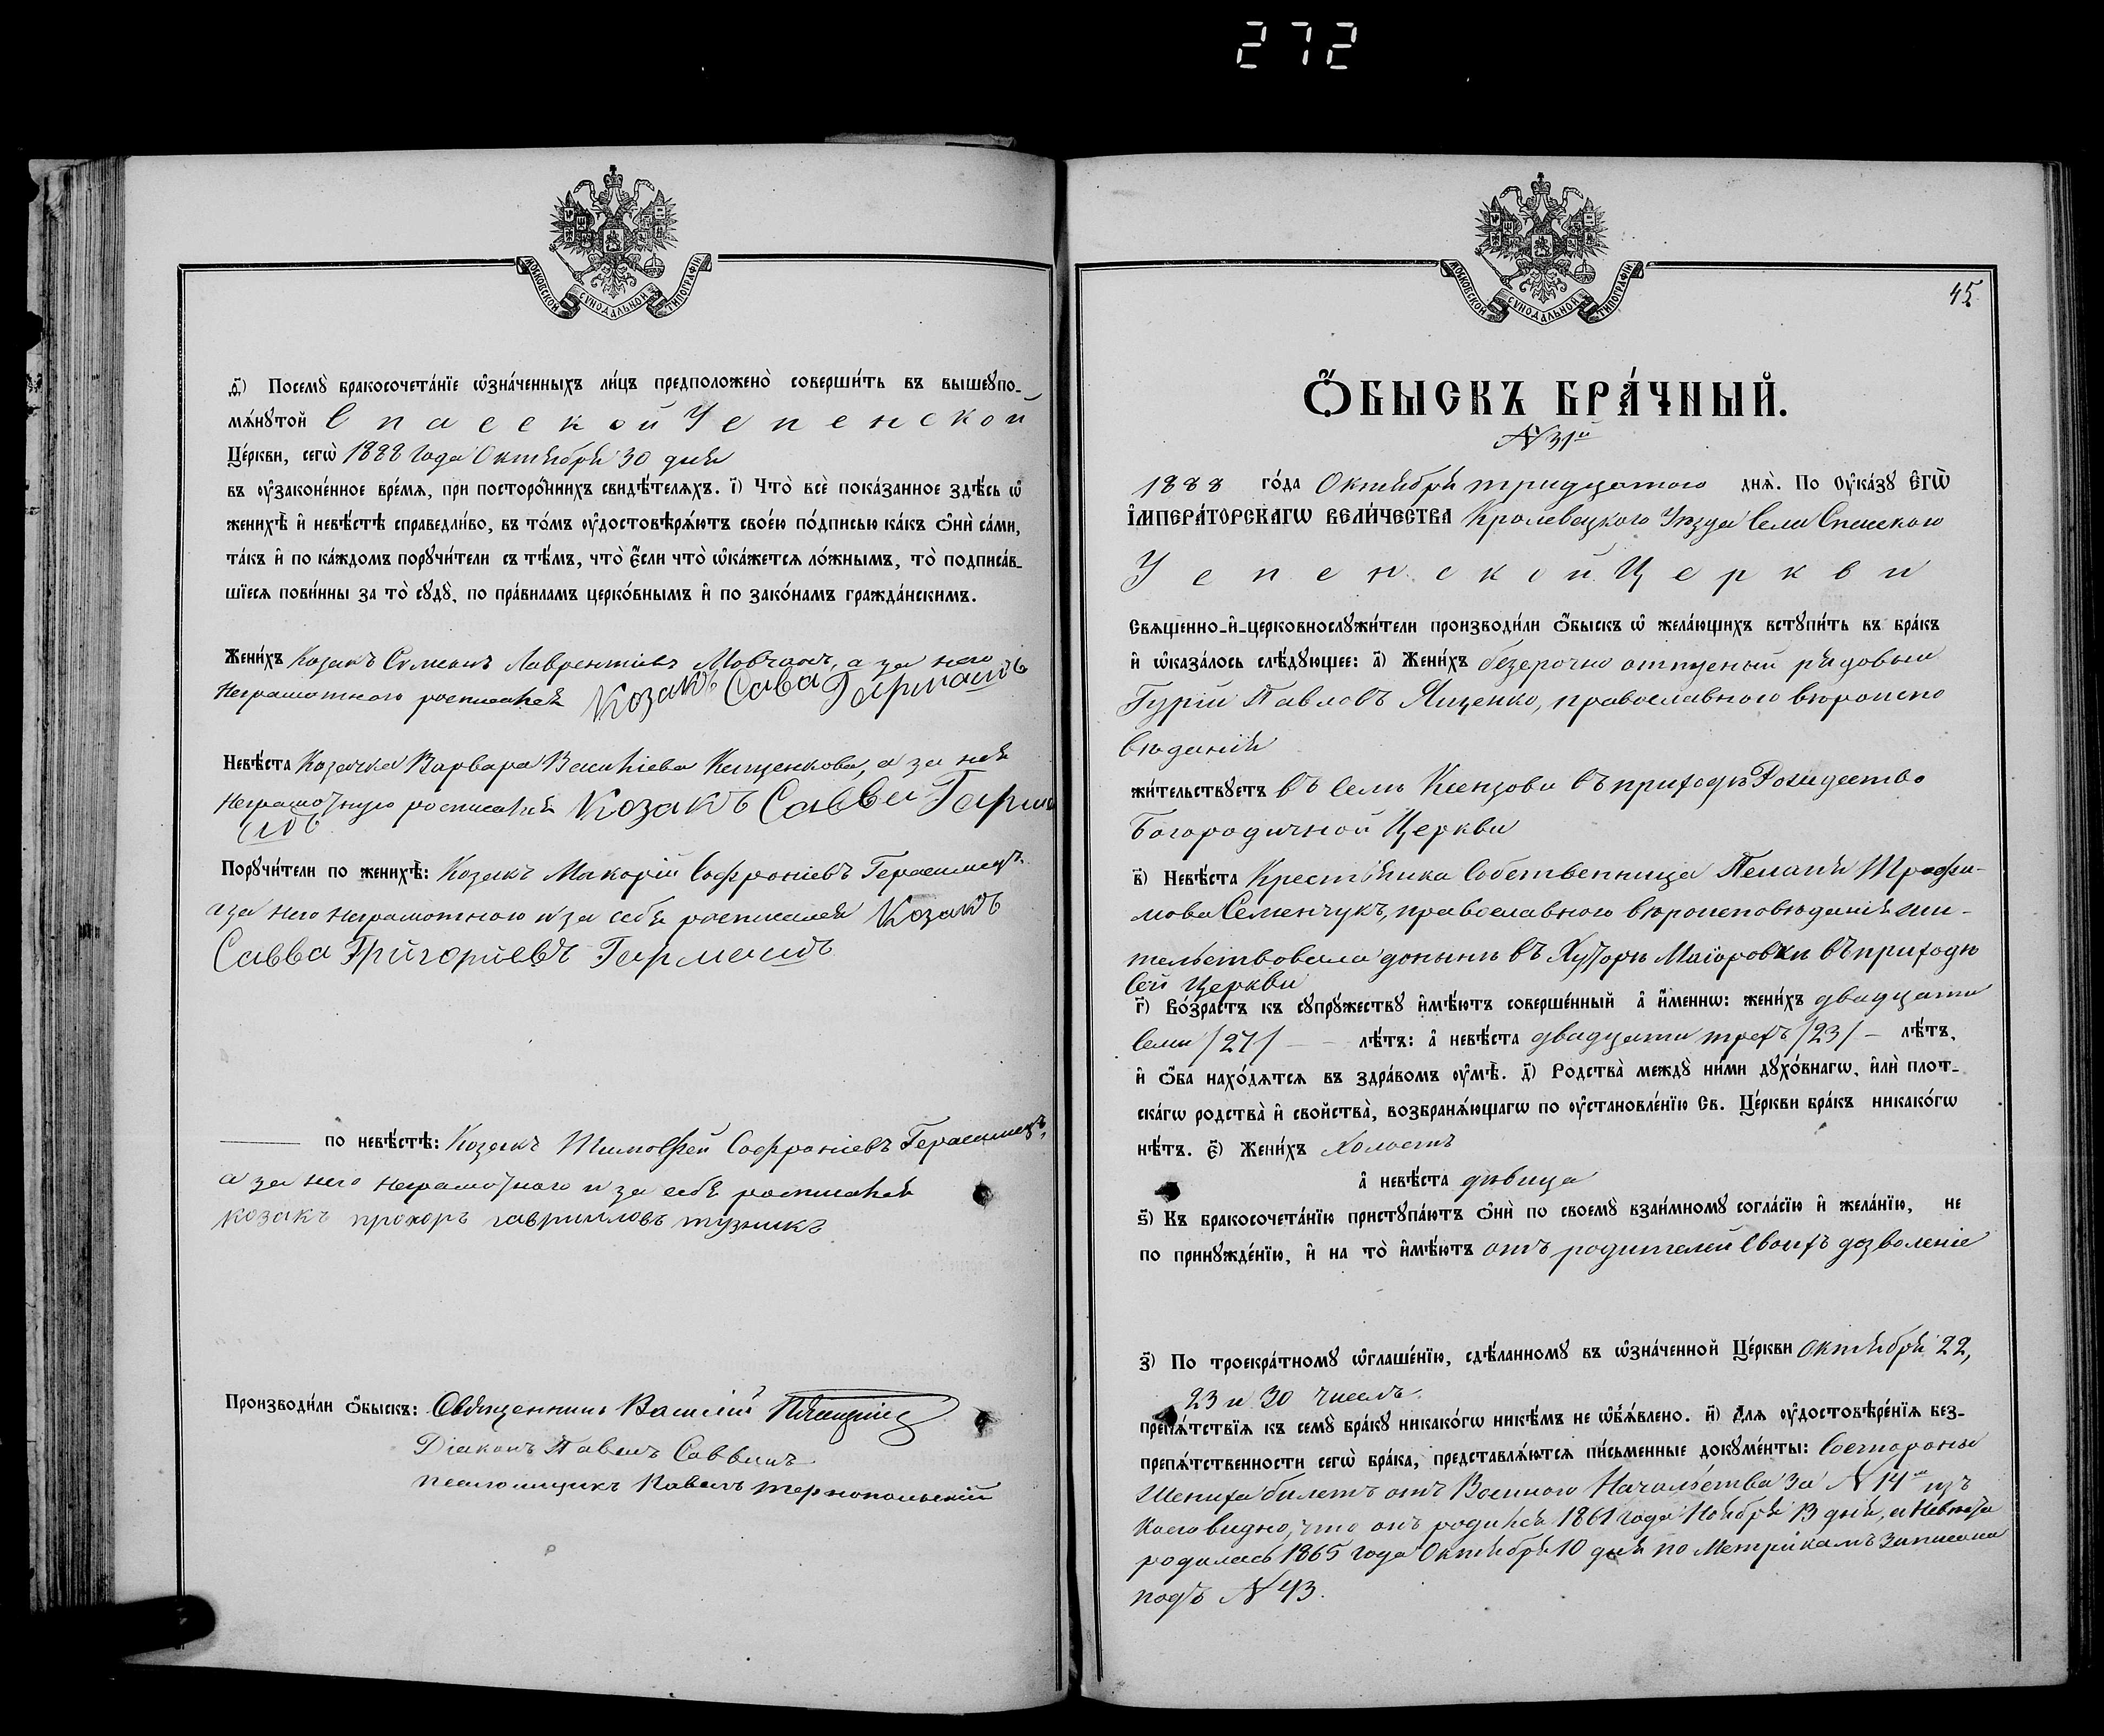 272
МОСКОВСКОЙ СѴНОДАЛЬНОЙ ТИПОГРАФІИ
д҃) Посемꙋ̀ бракосочета́нїе ѡ҆зна́ченныхъ ли́цъ предположено̀ соверши́ть въ вышеꙋпо-
мѧ́нꙋтой Спасской Успенской
Це́ркви, сегѡ̀ 1888 года Октября 30 дня
въ ᲂу҆законе́нное вре́мѧ, при посторо́ннихъ свидѣ́телѧхъ. і҃) Что̀ всѐ пока́занное здѣ́сь ѡ҆
женихѣ̀ и҆ невѣ́стѣ справедли́во, въ то́мъ ᲂу҆достовѣрѧ́ютъ свое́ю по́дписью ка́къ ѻ҆нѝ са́ми,
та́къ и҆ по ка́ждомъ порꙋчи́тели съ тѣ́мъ, что̀ є҆́сли что̀ ѡ҆ка́жетсѧ ло́жнымъ, то̀ подписа́в-
шїесѧ пови́нны за то̀ сꙋдꙋ̀, по пра́виламъ церко́внымъ и҆ по зако́намъ гражда́нскимъ.
Жени́хъ Козакъ Симеонъ Лаврентіевъ Мовчанъ, а за него
неграмотного росписался Козакъ Сава Гармашъ
Невѣ́ста Козачка Варвара Василіева Кащенкова, а за нея
неграмотную росписался Козакъ Савва Гарма
шъ
Порꙋчи́тели по женихѣ̀: Козакъ Макарій Софроніевъ Герасимецъ
а за него неграмотного и за себя росписался Козакъ
Савва Григоріевъ Гармашъ
по невѣ́стѣ: Козакъ Тимофей Софроніевъ Герасимецъ,
а за него неграмотного и за себя росписался
козакъ прохоръ гавриловъ тузникъ
Производи́ли ѻ҆́быскъ: Священникъ Василій
Діаконъ Павелъ Саввинъ
псаломщикъ Павелъ Тернопольскій
МОСКОВСКОЙ СѴНОДАЛЬНОЙ ТИПОГРАФІИ
45
Ѻ҆́БЫСКЪ БРА́ЧНЫЙ.
N 31й
1888 го́да Октября тридцатого днѧ̀. По Оу҆ка́зꙋ Є҆гѡ̀
І҆мпера́торскагѡ Вели́чества Кролевецкого Уѣзда Села Спаского
Успенской Церкви
Свѧщенно-и҆-церковнослꙋжи́тели производи́ли ѻ҆́быскъ ѡ҆ жела́ющихъ встꙋпи́ть въ бра́къ
и҆ ѡ҆каза́лось слѣ́дꙋющее: а҃) Жени́хъ безсрочно отпуеный рядовый
Гурій Павловъ Яценко, православного вѣроиспо
вѣданія
жи́тельствꙋетъ въ селѣ Ксензовки въ приходѣ Рождество
Богородичной Церкви
в҃) Невѣ́ста Крестьянка Собственница Пелагія Трофи-
мова Семенчукъ, православного вѣроисповѣданія жи-
тельствовала донынѣ въ Хуторѣ Маіоровки въ приходѣ
сей Церкви
г҃) Во́зрастъ къ сꙋпрꙋ́жествꙋ и҆мѣ́ютъ соверше́нный а҆ и҆́менно: жени́хъ двадцати
семи /27/ – – лѣ́тъ: а҆ невѣ́ста двадцати трехъ /23/ – лѣ́тъ,
и҆ ѻ҆́ба нахо́дѧтсѧ въ здра́вомъ ᲂу҆мѣ̀. д҃) Родства̀ междꙋ̀ ни́ми дꙋхо́внагѡ, и҆лѝ плот-
ска́гѡ родства̀ и҆ свойства̀, возбранѧ́ющагѡ по ᲂу҆становле́нїю Св. Це́ркви бра́къ никако́гѡ
нѣ́тъ. є҃) Жени́хъ холостъ
а҆ невѣ́ста дѣвица
ѕ҃) Къ бракосочета́нїю пристꙋпа́ютъ ѻ҆нѝ по своемꙋ̀ взаи́мномꙋ согла́сїю и҆ жела́нїю, не
по принꙋжде́нїю, и҆ на то̀ и҆мѣ́ютъ отъ родителей своихъ дозволеніе
з҃) По троекра́тномꙋ ѡ҆глаше́нїю, сдѣ́ланномꙋ въ ѡ҆зна́ченной Це́ркви Октября 22,
23 и 30 чиселъ
препѧ́тствїѧ къ семꙋ̀ бра́кꙋ никако́гѡ никѣ́мъ не ѡ҆б̾ѧ́влено. и҃) Длѧ ᲂу҆достовѣре́нїѧ без-
препѧ́тственности сегѡ̀ бра́ка, представлѧ́ютсѧ пи́сьменные докꙋме́нты: Состороны
Жениха билетъ отъ Военного Начальства за N 14м изъ
коего видно, что онъ родился 1861 года Ноября 13 дня, а Невѣста
родилась 1865 года Октября 10 дня по Метрикамъ записана
подъ N 43.